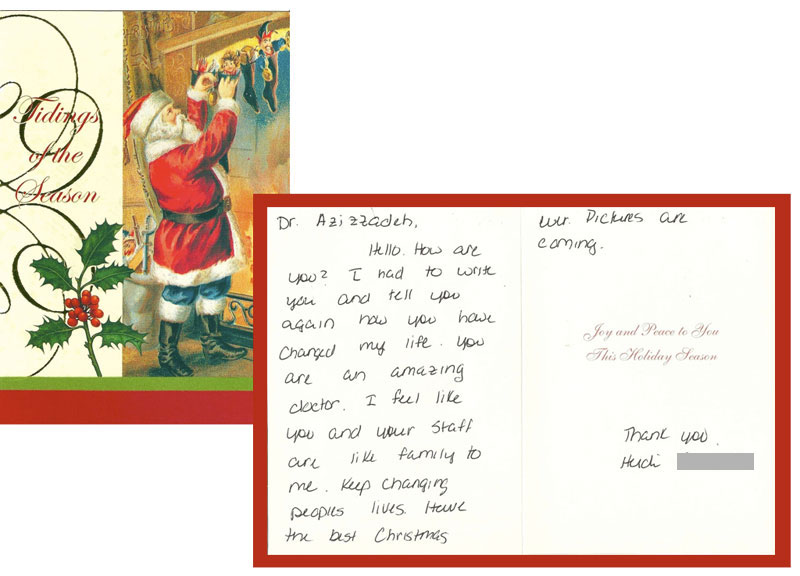 Tidings
of the
Season
Dr. Azizzadeh,
Hello. How are
you? I had to write
you and tell you
again how you have
changed my life. You
are an amazing
doctor. I feel like
you and your staff
are like family to
me. Keep changing
peoples lives. Have
the best Christmas
ever. Pictures are
coming.
Joy and Peace to You
This Holiday Season
Thank you.
Heidi